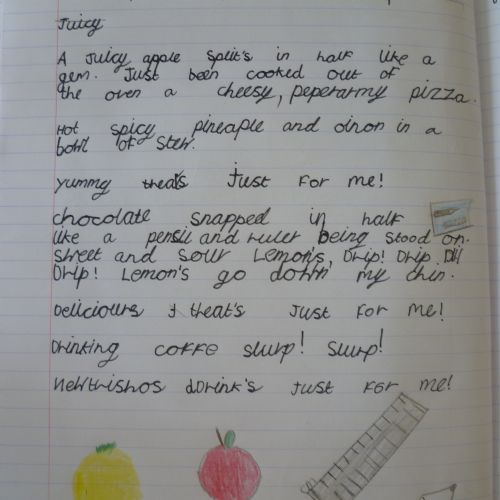 Juicy
A Juicy apple split's in half like a
gem. Just been cooked out of
the oven a cheesy, peperarmy pizza.
Hot spicy pineaple and onon in a
bowl of stew.
yummy treats Just for me!
chocolate snapped in half
like a pensil and ruler being stood on.
sweet and sour Lemon's, Drip! Drip
Drip! Lemon's go down my chin.
Deliciours treat's Just for me!
Drinking coffe slurp! slurp!
Newtrishos dDrink's Just for me!